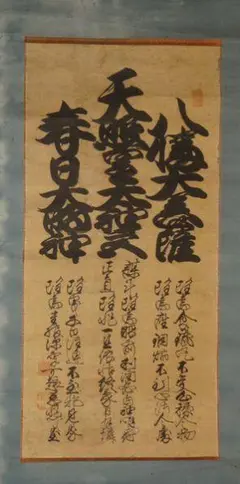 八幡大菩薩
雖為食鐵丸不受心穢人物
雖為座銅焰不到心濁人處
天照皇太神宮
謀計雖為眼前利潤必当神明罰
正直雖非一旦依怙終蒙日月憐
春日大明神
雖曳千日注連不到邪見家
雖為重服深厚可趣慈悲室